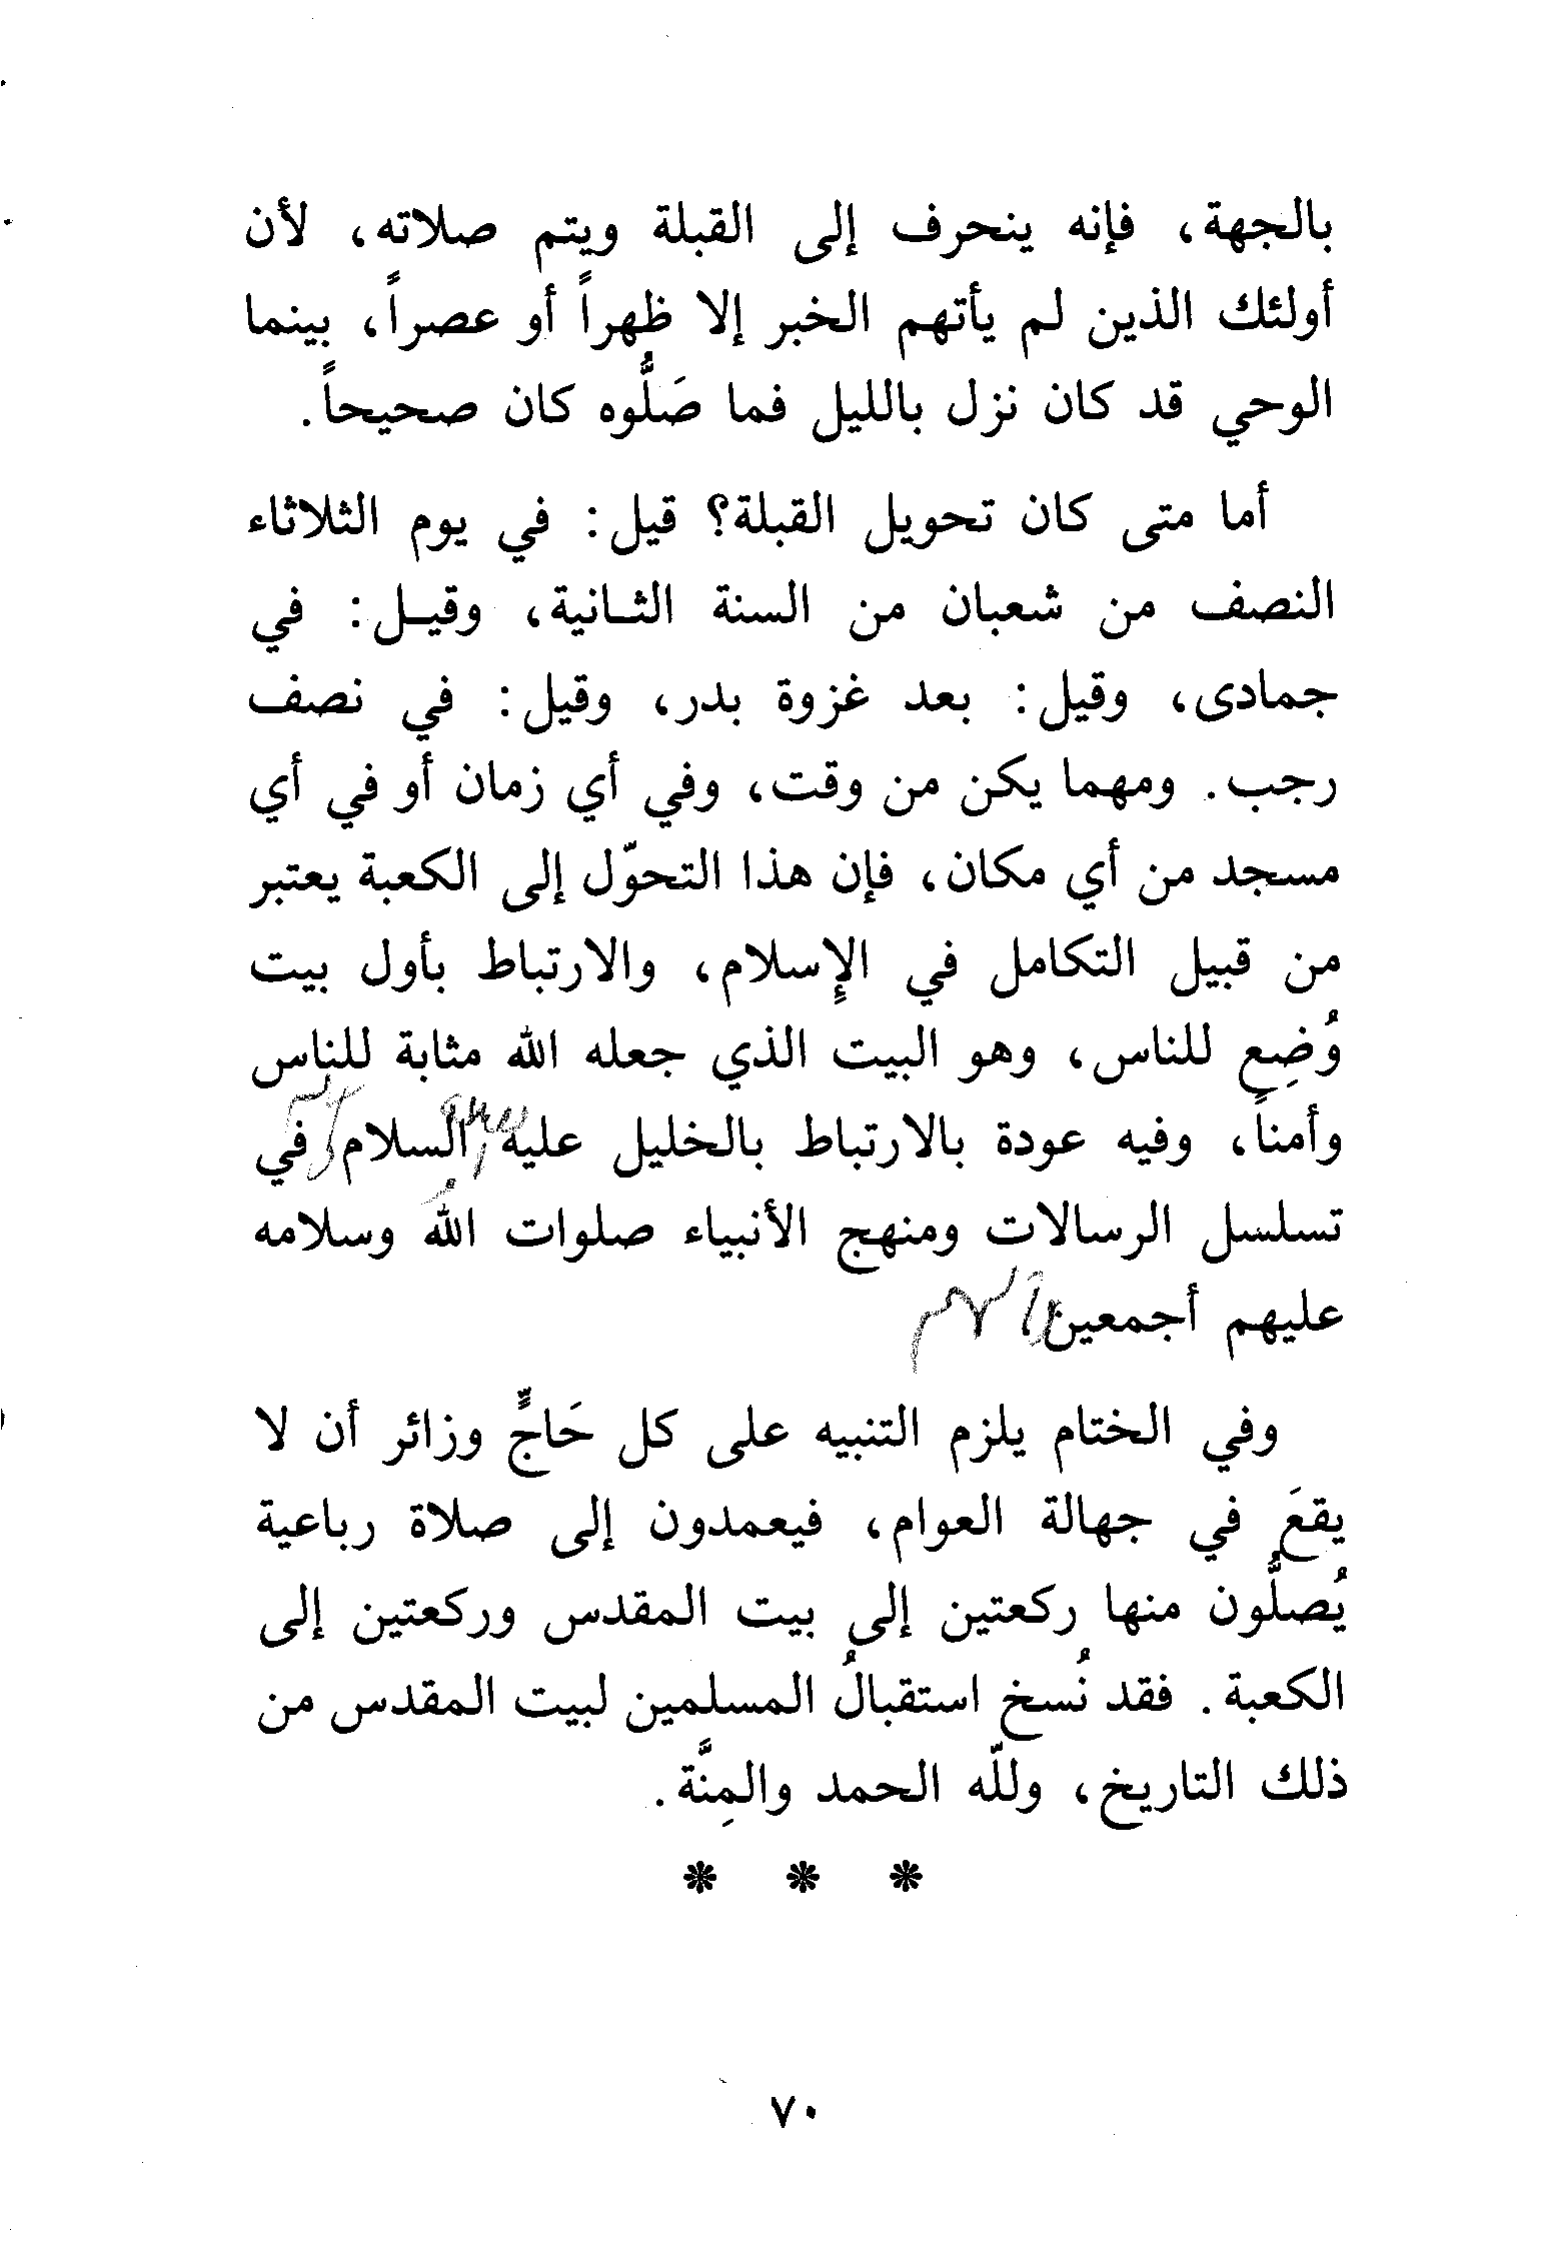 بالجهة، فإنه ينحرف إلى القبلة ويتم صلاته، لأن
أولئك الذين لم يأتهم الخبر إلا ظهراً أو عصراً، بينما
الوحي قد كان نزل بالليل فما صَلُّوه كان صحيحاً.
أما متى كان تحويل القبلة؟ قيل: في يوم الثلاثاء
النصف من شعبان من السنة الثـانية، وقيـل: في
جمادى، وقيل: بعد غزوة بدر، وقيل: في نصف
رجب. ومهما يكن من وقت، وفي أي زمان أو في أي
مسجد من أي مكان، فإن هذا التحوّل إلى الكعبة يعتبر
من قبيل التكامل في الإسلام، والارتباط بأول بيت
وُضِع للناس، وهو البيت الذي جعله الله مثابة للناس
وأمناً، وفيه عودة بالارتباط بالخليل عليه السلام في
تسلسل الرسالات ومنهج الأنبياء صلوات الله وسلامه
عليهم أجمعين
وفي الختام يلزم التنبيه على كل حَاجٍّ وزائر أن لا
يقعَ في جهالة العوام، فيعمدون إلى صلاة رباعية
يُصلُّون منها ركعتين إلى بيت المقدس وركعتين إلى
الكعبة. فقد نُسخ استقبالُ المسلمين لبيت المقدس من
ذلك التاريخ، وللّه الحمد والمِنَّة.
* * *
٧٠